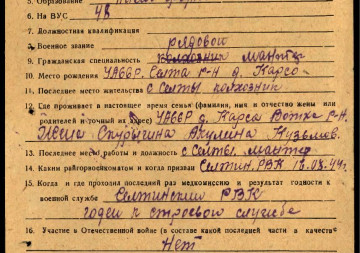 5. Образование
6. На ВУС 48
7. Должностная квалификация
8. Военное звание рядовой
9. Гражданская специальность колхозник монтер
10. Место рождения УАССР. Селта р-н д. Карсо-
11. Последнее место жительства с Селты колхозник
12. Где проживает в настоящее время семья (фамилия, имя и отчество жены или
родителей и точный их адрес) УАССР д. Карса Вотка р-н.
Акулина Кузьмов.
13. Последнее место работы и должность с Селты. монтер
14. Каким райгорвоенкоматом и когда призван Селтин. РВК 18.08.44г.
15. Когда и где проходил последний раз медкомиссию и результат годности к
военной службе Селтинский РВК
годен к строевой службе
16. Участие в Отечественной войне (в составе какой последней части в качеств
Нет